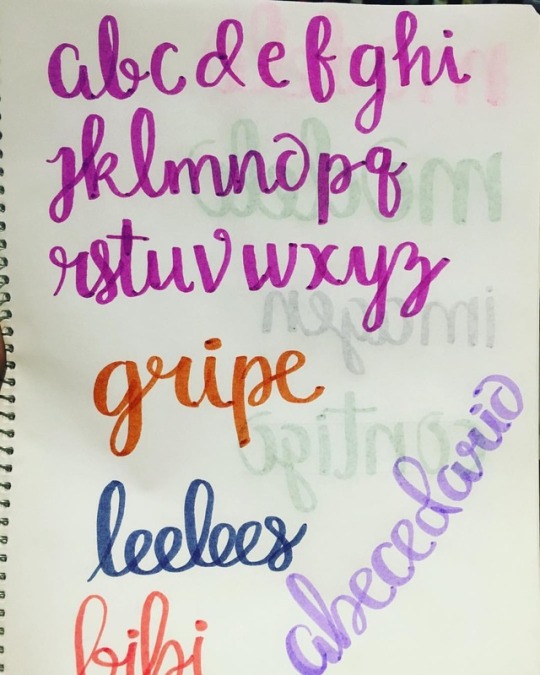 abcdefghi
jklmnopq
rstuvwxyz
gripe
leelees
bibi
abecedario